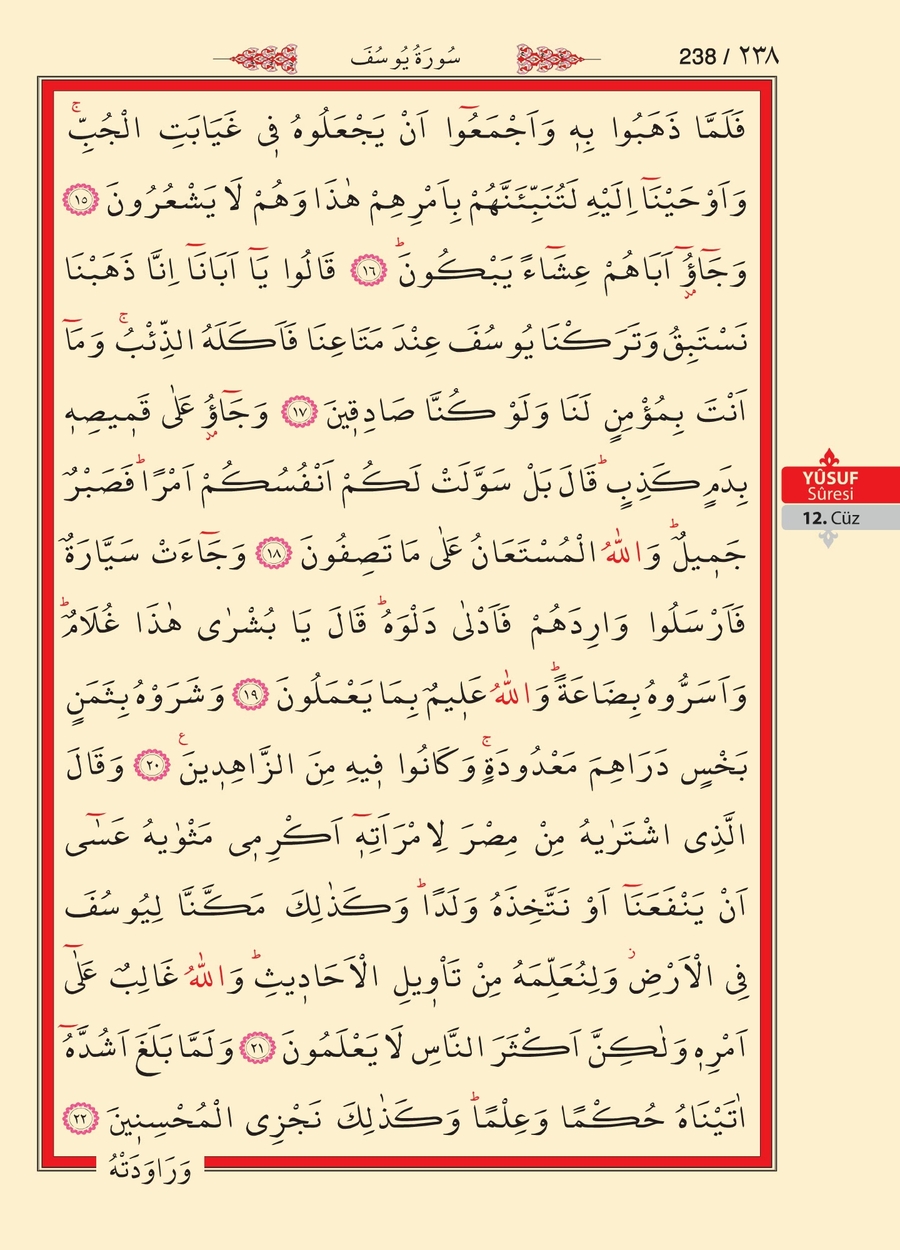 سُورَةُ يُوسُفَ
238 / ٢٣٨
فَلَمَّا ذَهَبُوا بِهٖ وَاَجْمَعُٓوا اَنْ يَجْعَلُوهُ فٖي غَيَابَتِ الْجُبِّۚ
وَاَوْحَيْنَٓا اِلَيْهِ لَتُنَبِّئَنَّهُمْ بِاَمْرِهِمْ هٰذَا وَهُمْ لَا يَشْعُرُونَ ﴿١٥﴾
وَجَٓاؤُٓ اَبَاهُمْ عِشَٓاءً يَبْكُونَؕ ﴿١٦﴾ قَالُوا يَٓا اَبَانَٓا اِنَّا ذَهَبْنَا
نَسْتَبِقُ وَتَرَكْنَا يُوسُفَ عِنْدَ مَتَاعِنَا فَاَكَلَهُ الذِّئْبُۚ وَمَٓا
اَنْتَ بِمُؤْمِنٍ لَنَا وَلَوْ كُنَّا صَادِقٖينَ ﴿١٧﴾ وَجَٓاؤُ عَلٰى قَمٖيصِهٖ
بِدَمٍ كَذِبٍؕ قَالَ بَلْ سَوَّلَتْ لَكُمْ اَنْفُسُكُمْ اَمْرًاؕ فَصَبْرٌ
جَمٖيلٌؕ وَاللّٰهُ الْمُسْتَعَانُ عَلٰى مَا تَصِفُونَ ﴿١٨﴾ وَجَٓاءَتْ سَيَّارَةٌ
فَاَرْسَلُوا وَارِدَهُمْ فَاَدْلٰى دَلْوَهُؕ قَالَ يَا بُشْرٰى هٰذَا غُلَامٌؕ
وَاَسَرُّوهُ بِضَاعَةًؕ وَاللّٰهُ عَلٖيمٌ بِمَا يَعْمَلُونَ ﴿١٩﴾ وَشَرَوْهُ بِثَمَنٍ
بَخْسٍ دَرَاهِمَ مَعْدُودَةٍۚ وَكَانُوا فٖيهِ مِنَ الزَّاهِدٖينَ ع ﴿٢٠﴾ وَقَالَ
الَّذِي اشْتَرٰيهُ مِنْ مِصْرَ لِامْرَاَتِهٖٓ اَكْرِمٖي مَثْوٰيهُ عَسٰٓى
اَنْ يَنْفَعَنَٓا اَوْ نَتَّخِذَهُ وَلَدًاؕ وَكَذٰلِكَ مَكَّنَّا لِيُوسُفَ
فِي الْاَرْضِؗ وَلِنُعَلِّمَهُ مِنْ تَاْوٖيلِ الْاَحَادٖيثِؕ وَاللّٰهُ غَالِبٌ عَلٰٓى
اَمْرِهٖ وَلٰكِنَّ اَكْثَرَ النَّاسِ لَا يَعْلَمُونَ ﴿٢١﴾ وَلَمَّا بَلَغَ اَشُدَّهُٓ
اٰتَيْنَاهُ حُكْمًا وَعِلْمًاؕ وَكَذٰلِكَ نَجْزِي الْمُحْسِنٖينَ ﴿٢٢﴾
وَرَاوَدَتْهُ
YÛSUF
Sûresi
12. Cüz